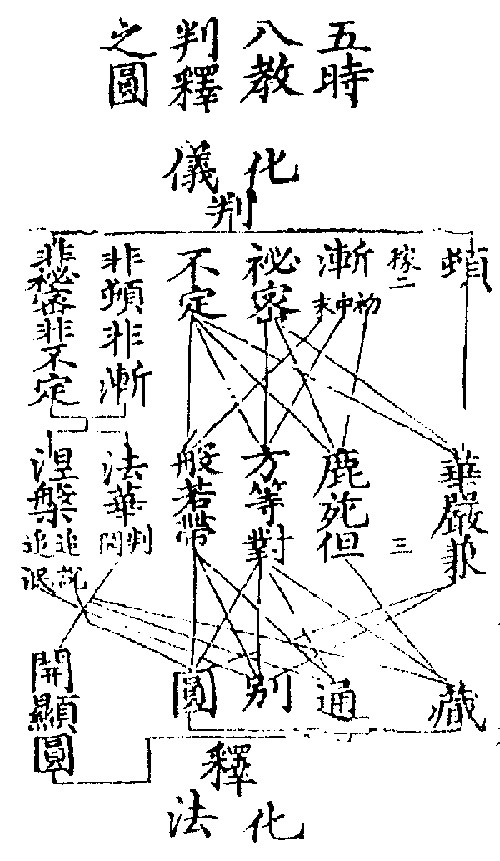 五時
八教
判釋
之圖
化儀
判
頓
漸
初中末
祕密
不定
非頓非漸
非秘密非不定
華嚴兼
三
鹿苑但
方等對
般若帶
法華
涅槃
追說
追泯
藏
通
別
圓
開顯圓
釋
化法